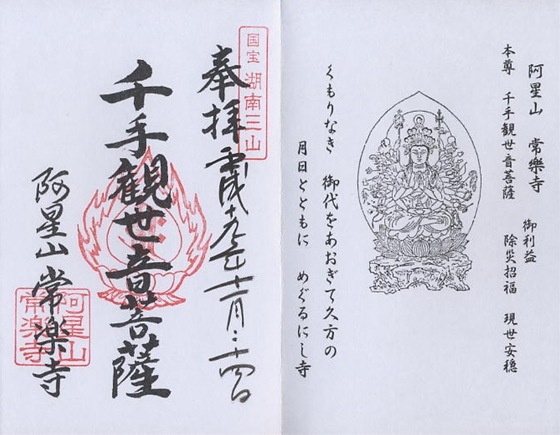 阿星山 常樂寺
本尊 千手観世音菩薩
御利益
除災招福 現世安穏
くもりなき 御代をあおぎて久方の
月日とともに めぐるにし寺
国宝 湖南三山
奉拝 平成十九年十一月二十四日
千手観世音菩薩
阿星山 常楽寺
阿星山
常楽寺